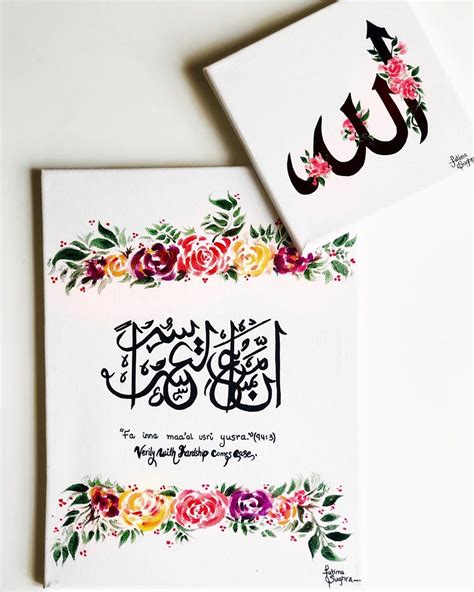 الله
Fatima
Sughra
إنّ مع العسر يسراً
"Fa inna maa'al usri yusra."(94:3)
Verily with Hardship comes ease.
Fatima
Sughra